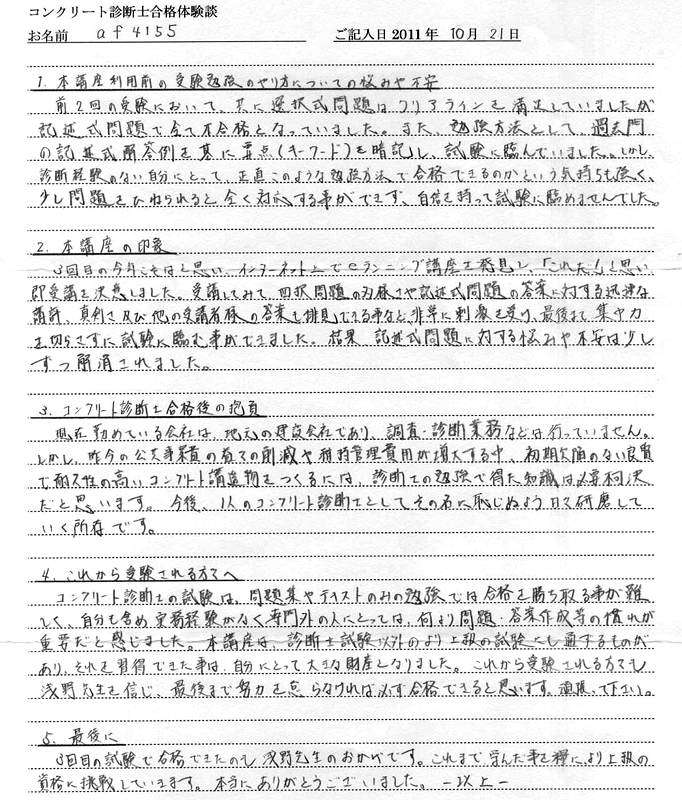 コンクリート診断士合格体験談
お名前 af4155 ご記入日 2011年 10月 21日
1. 本講座利用前の受験勉強のやり方についての悩みや不安
前2回の受験において、共に選択式問題はクリアラインを満足していましたが
記述式問題で全て不合格となっていました。また、勉強方法として、過去問
の記述式解答例を基に要点(キーワード)を暗記し、試験に臨んでいました。しかし、
診断経験のない自分にとって、正直このような勉強方法で合格できるのかという気持ちも強く、
少し問題をひねられると全く対応する事ができず、自信を持って試験に臨めませんでした。
2. 本講座の印象
3回目の今年こそはと思い、インターネット上でeラーニング講座を発見し、「これだ!」と思い
即受講を決意しました。受講してみて、四択問題の多様さや記述式問題の答案に対する迅速な
講評、真剣さ及び他の受講者様の答案も拝見できる事など非常に刺激を受け、最後まで集中力
を切らさずに試験に臨む事ができました。結果、記述式問題に対する悩みや不安は少し
ずつ解消されました。
3. コンクリート診断士合格後の抱負
現在勤めている会社は、地元の建設会社であり、調査・診断業務などは行っていません。
しかし、昨今の公共事業費の削減や維持管理費用が増大する中、初期欠陥のない良質
で耐久性の高いコンクリート構造物をつくるには、診断士の勉強で得た知識は必要不可決
だと思います。今後、1人のコンクリート診断士としてその名に恥じぬよう日々研磨して
いく所存です。
4. これから受験される方々へ
コンクリート診断士の試験は、問題集やテキストのみの勉強では合格を勝ち取る事が難
しく、自分も含め実務経験がなく専門外の人にとっては、何より問題・答案作成等の慣れが
重要だと感じました。本講座は、診断士試験以外のより上級の試験にも通ずるものが
あり、それを習得できた事は、自分にとって大きな財産となりました。これから受験される方々も
浅野先生を信じ、最後まで努力を怠らなければ必ず合格できると思います。頑張って下さい。
5. 最後に
3回目の試験で合格できたのも浅野先生のおかげです。これまで学んだ事を糧により上級の
資格に挑戦していきます。本当にありがとうございました。 -以上-